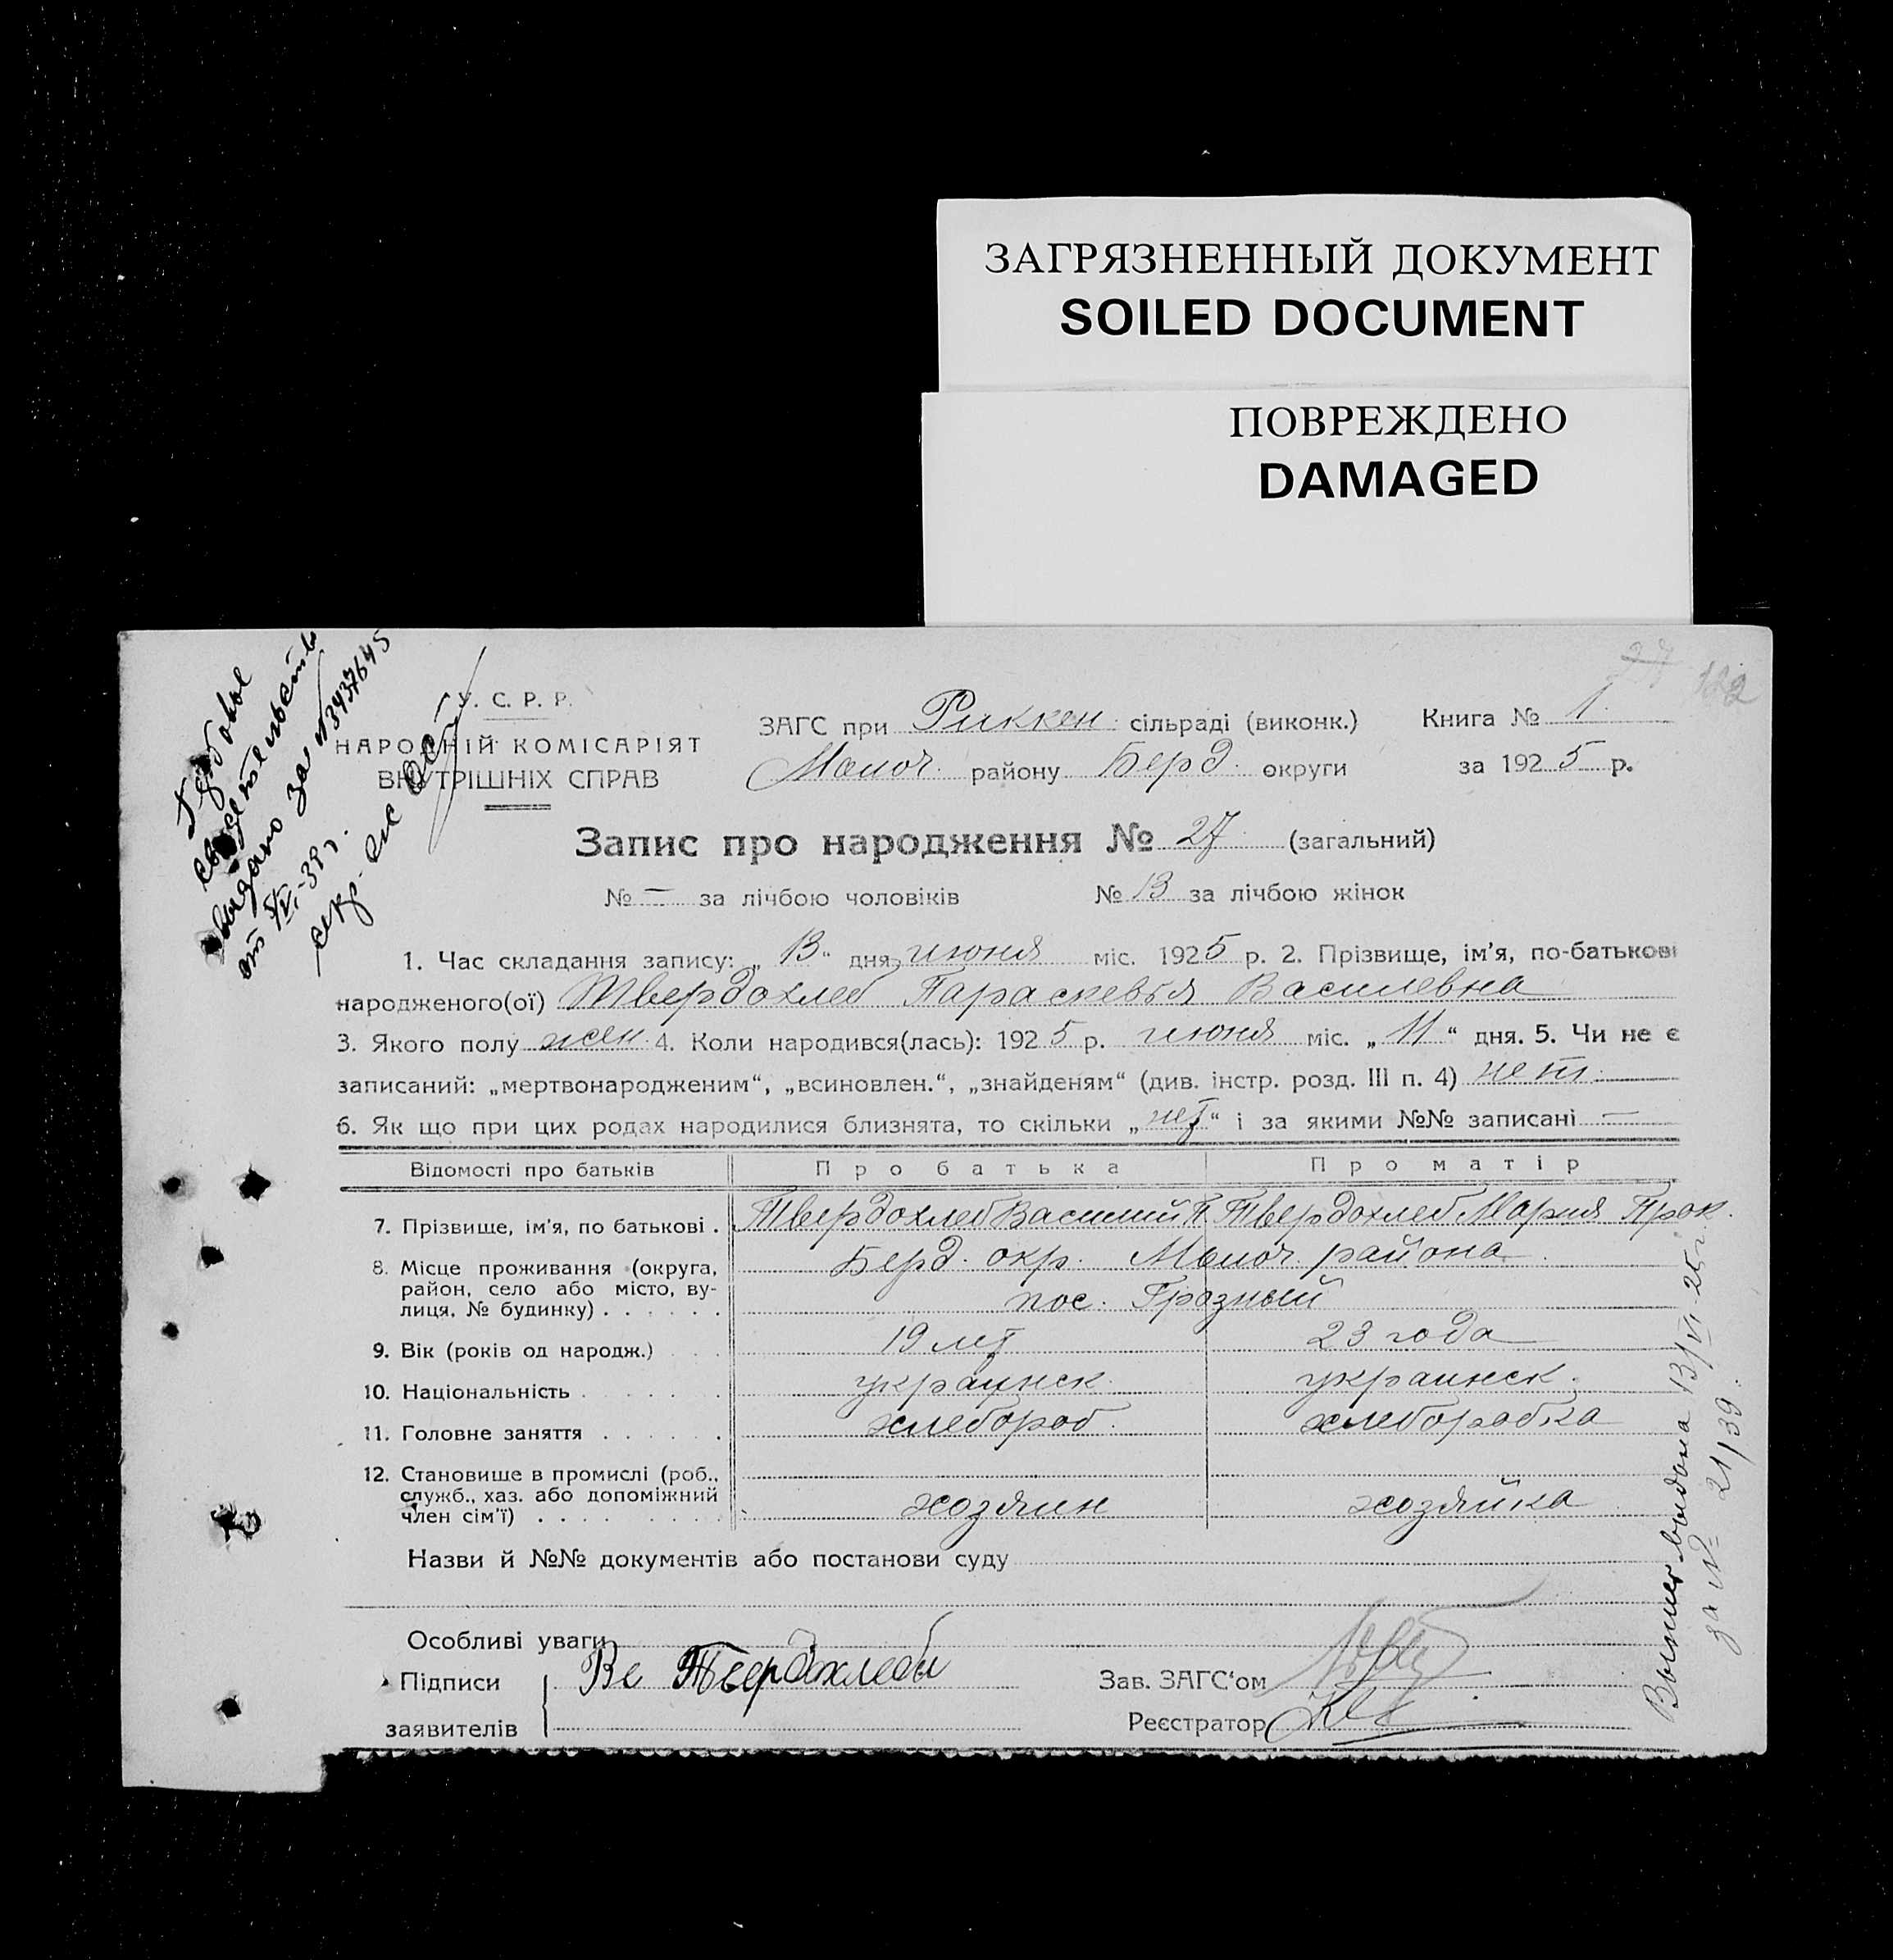 ЗАГРЯЗНЕННЫЙ ДОКУМЕНТ
SOILED DOCUMENT
ПОВРЕЖДЕНО
DAMAGED
27
Гербовое
свидетельство
выдано за №3437645
от 5/VI-39 г.
секр.
У. С. Р. Р.
НАРОДНІЙ КОМІСАРІЯТ
ВНУТРІШНІХ СПРАВ
ЗАГС при Риккен. сільраді (виконк.) Книга № 1.
Молоч. району Берд. округи за 1925 р.
Запис про народження № 27 (загальний)
№ — за лічбою чоловіків № 13 за лічбою жінок
1. Час складання запису: „ 13 “ дня июня міс. 1925 р. 2. Прізвище, ім’я, по-батькові
народженого(ої) Твердохлеб Параскевья Василевна
3. Якого полу жен. 4. Коли народився(лась): 1925 р. июня міс. „ 11 “ дня. 5. Чи не є
записаний: „мертвонародженим“, „всиновлен.“, „знайденям“ (див. інстр. розд. III п. 4) нет.
6. Як що при цих родах народилися близнята, то скільки „ нет “ і за якими №№ записані —
Відомості про батьків Про батька Про матір
7. Прізвище, ім’я, по батькові . Твердохлеб Василий П. Твердохлеб Мария Прок.
8. Місце проживання (округа, Берд. окр. Молоч. района
район, село або місто, ву-
лиця, № будинку) . . . . . . пос. Грозный
9. Вік (років од народж.) . . . 19 лет 23 года
10. Національність . . . . . украинск. украинск.
11. Головне заняття . . . . . . хлебороб. хлеборобка
12. Становище в промислі (роб.,
служб., хаз. або допоміжний хозяин хозяйка
член сім’ї) . . . . . . . .
Назви й №№ документів або постанови суду
Особливі уваги
Підписи Ве Твердохлебы Зав. ЗАГС‘ом
заявителів Реєстратор
Выпись выдана 13/VI-25 г.
за № 21/39.